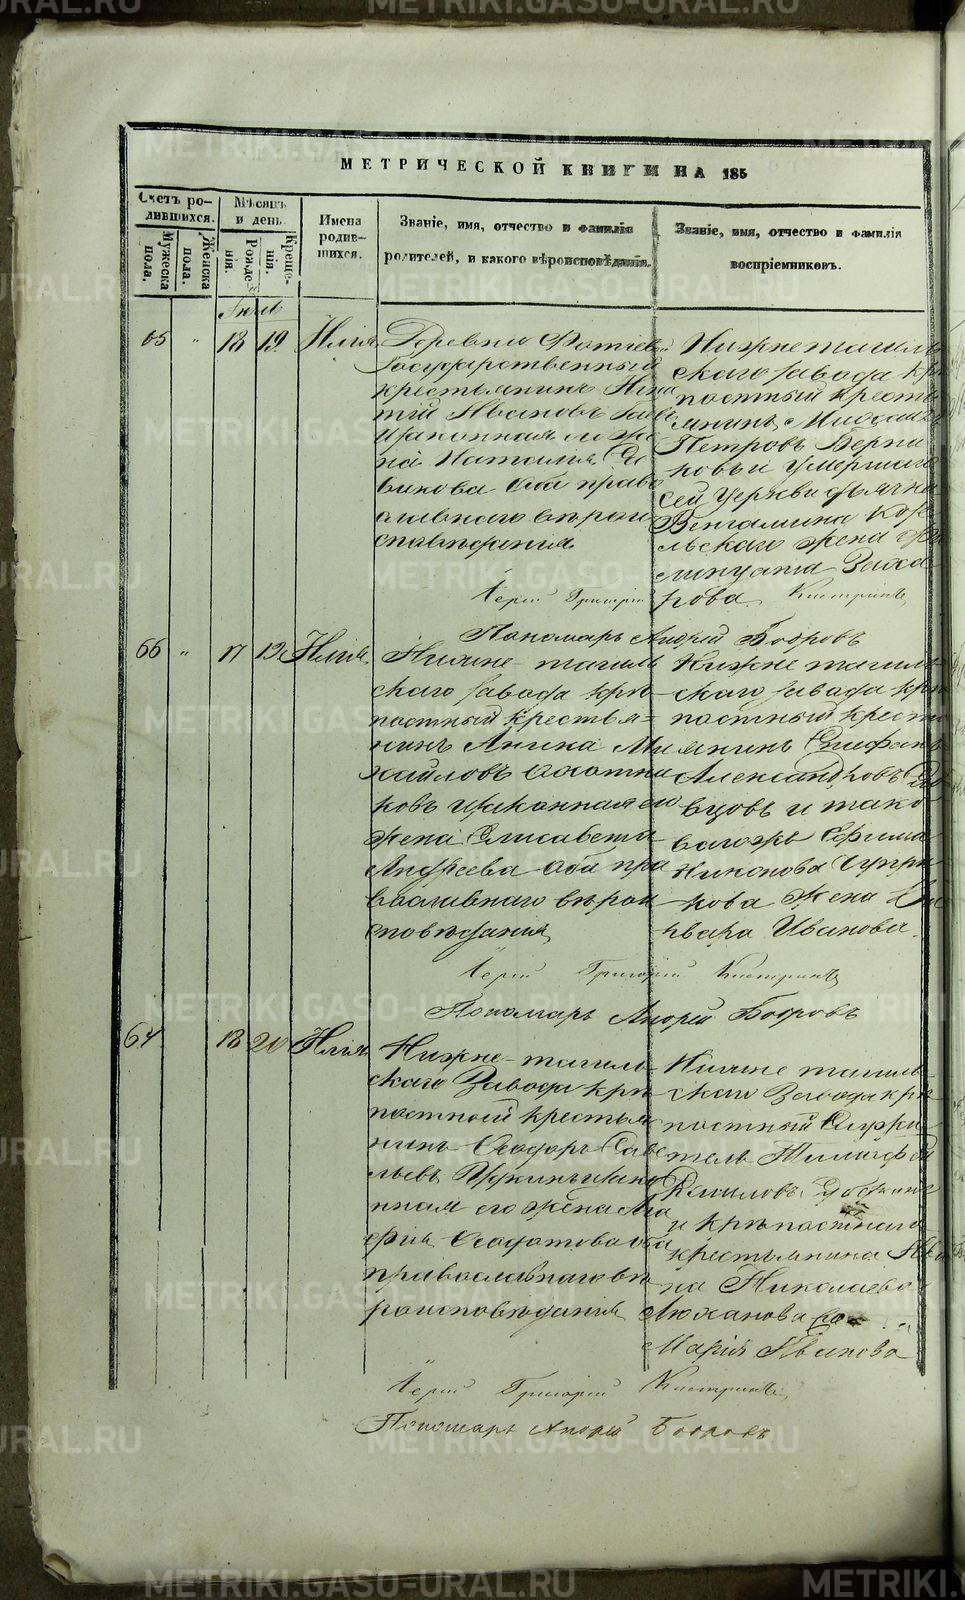 МЕТРИЧЕСКОЙ КНИГИ НА 185
Счетъ родившихся.
Мужеска пола.
Женска пола.
Мѣсяцъ и день
Рожденія.
Крещенія.
Имена родившихся.
Званіе, имя, отчество и фамилія
родителей, и какого вѣроисповѣданія.
Званіе, имя, отчество и фамилія
воспріемниковъ.
Іюль
65 " 18 19 Илія
Деревни
Государственный
крестьянинъ Игна
тій Ивановъ
и законная его же
на Наталія
викова оба право
славнаго вѣрои
сповѣданія
Нижнетагиль
скаго завода крѣ
постный кресть
янинъ
Петровъ Верши
ковъ и умершаго
сей церкви дьячка
Веніамина Коре
льскаго жена
Заха
рова.
Іерей Григорій Кистринъ
Пономарь Андрей Бобровъ
66 " 17 19 Илія.
Нижне-тагиль
скаго завода крѣ
постный крестья=
нинъ Аника Ми
хайловъ Охотни
ковъ и законная его
жена Елисавета
Андреева оба пра
вославнаго вѣрои
сповѣданія
Нижне тагиль
скаго завода крѣ
постный кресть
янинъ Епифанъ
Александровъ
вцовъ и тако
вагожъ Ефима
Никонова
кова жена
Иванова.
Іерей Григорій Кистринъ
Пономарь Андрей Бобровъ
67 18 20 Илія
Нижне-тагиль
скаго Завода крѣ
постной крестья
нинъ Ѳеодоръ Саве
льевъ
нная его жена Ма
рія Ѳеодотова оба
православнаго вѣ
роисповѣданія
Нижне тагиль
скаго Завода крѣ
постный Служи
тель Тимофей
Даниловъ
и крѣпостнаго
крестьянина Ива
на Николаева
Люханова
Марія Иванова
Іерей Григорій Кистринъ
Пономарь Андрей Бобровъ
METRIKI.GASO-URAL.RU